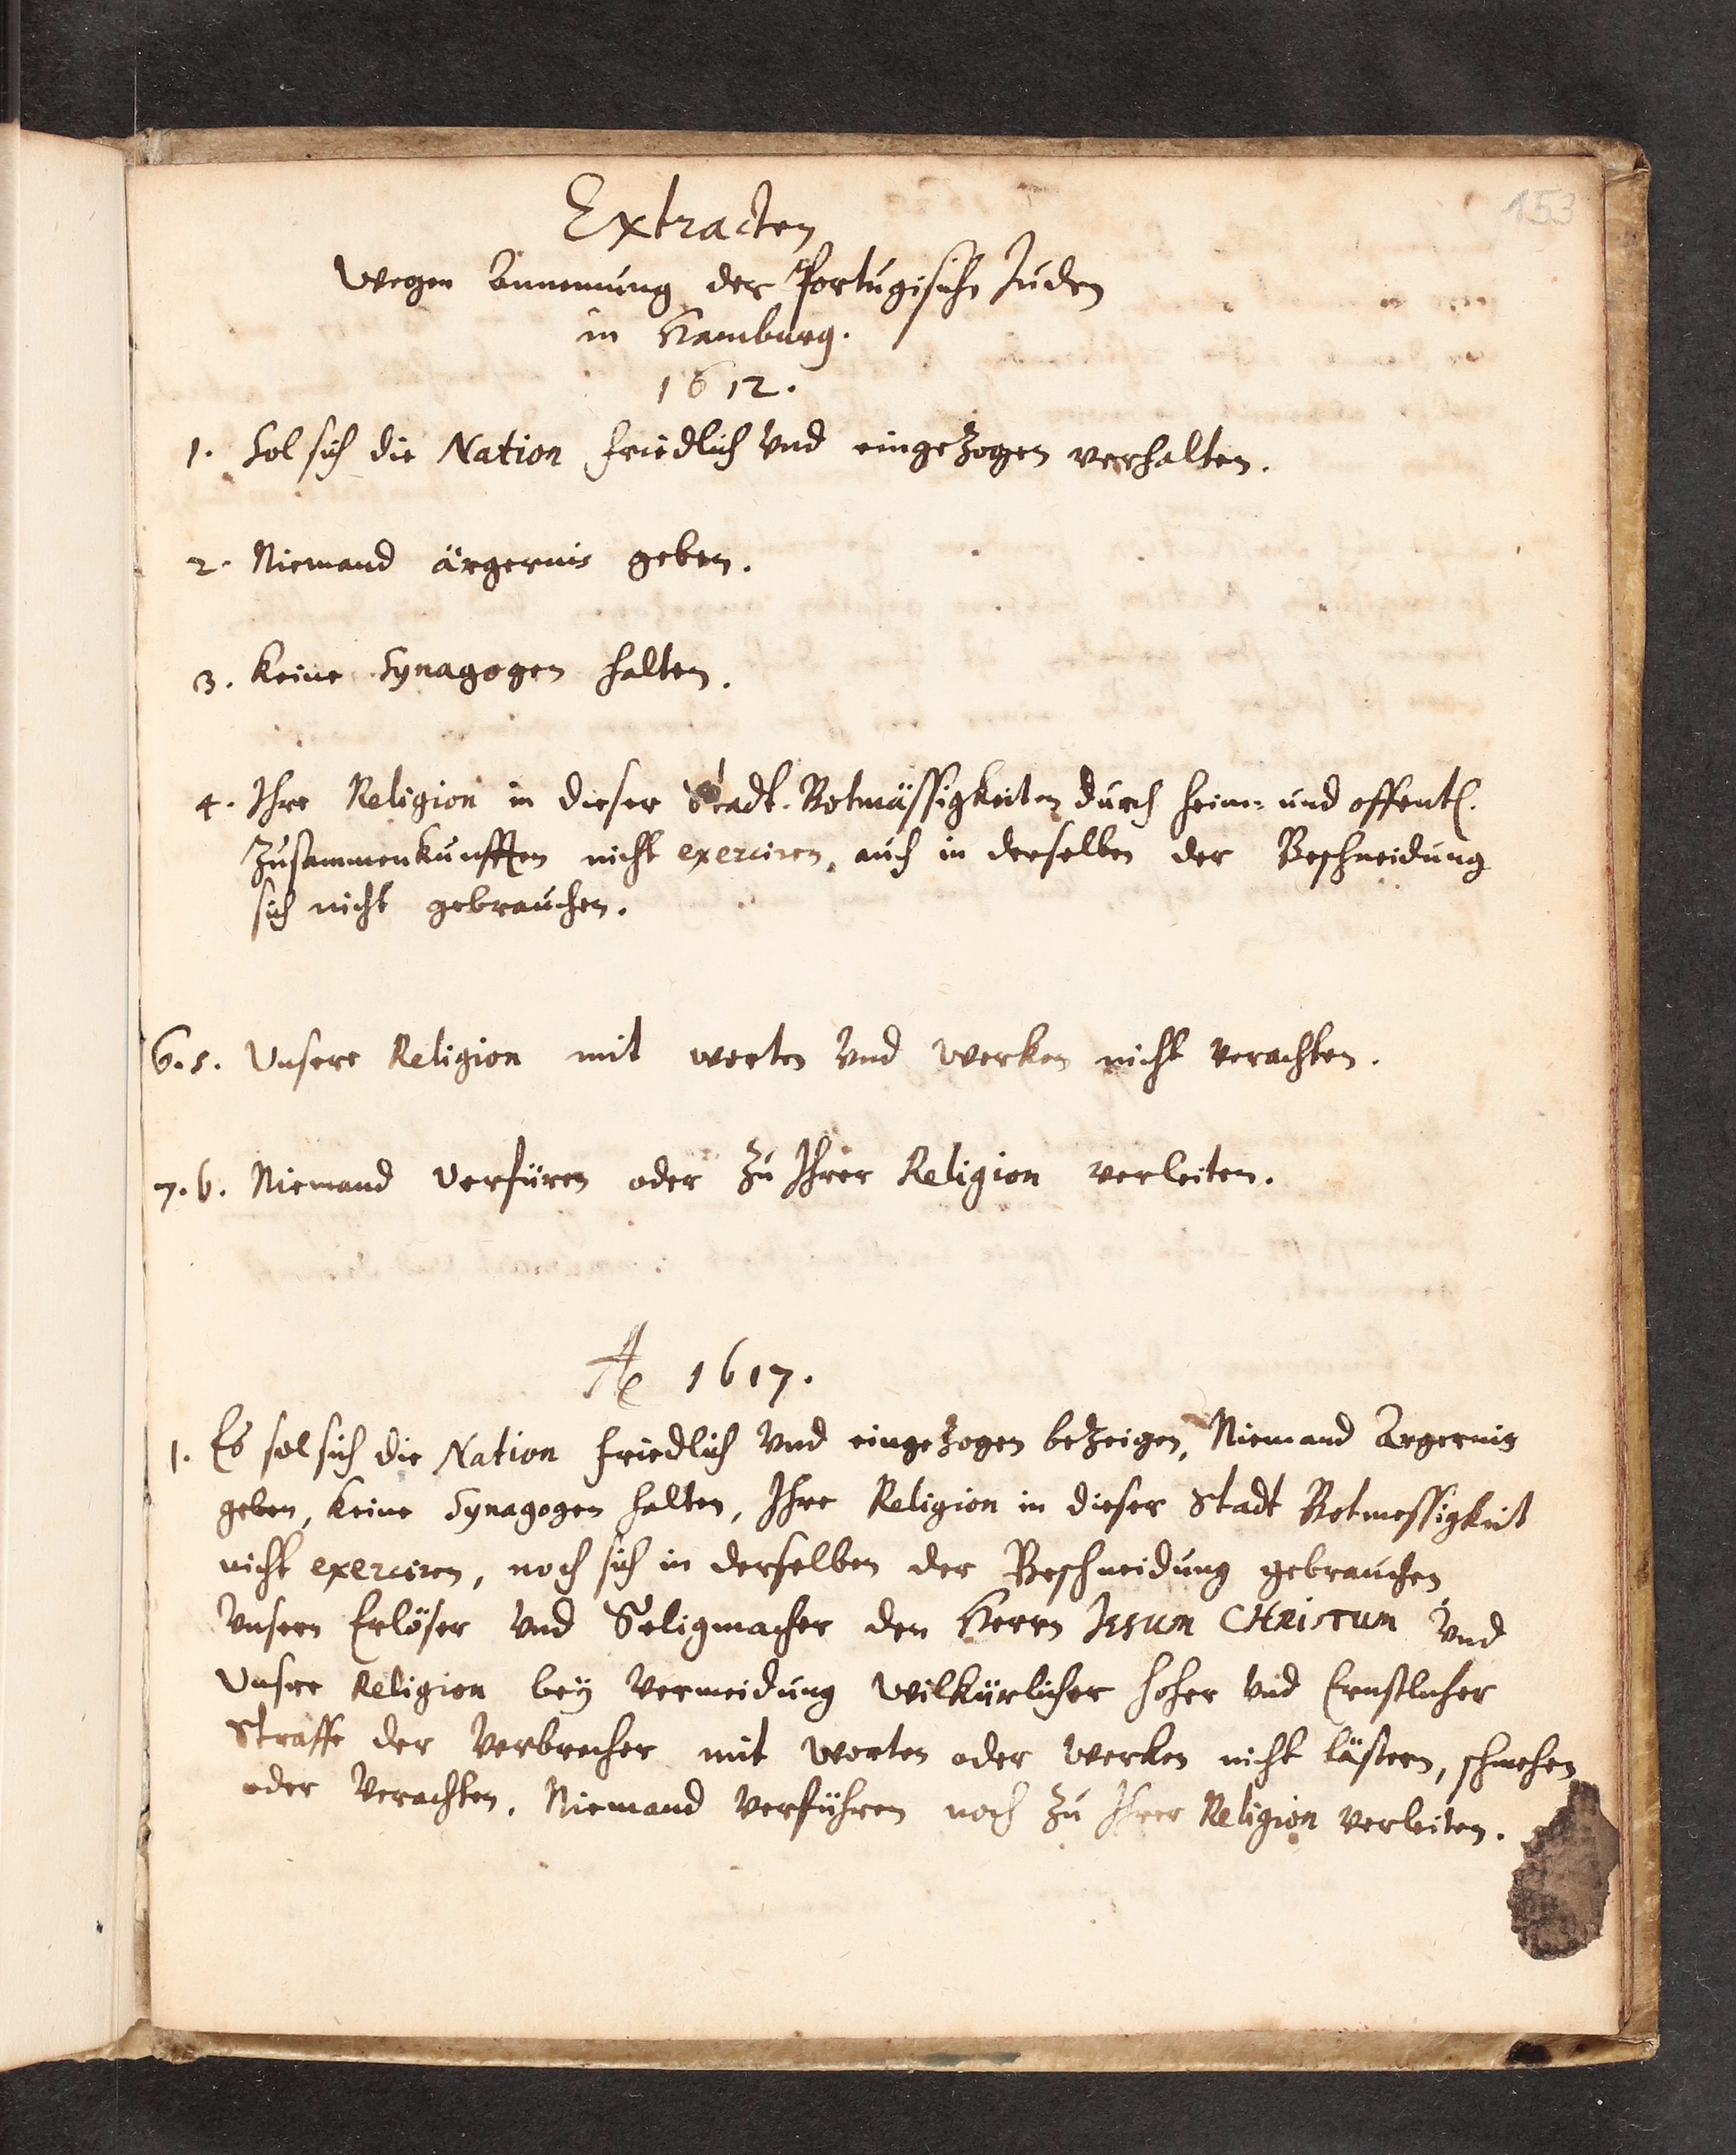 153
Extracten
Wegen Annemung der Portugische Juden
in Hamburg.
1612.
1. Sol sich die Nation friedlich und eingezogen verhalten.
2. Niemand ärgernis geben.
3. Keine Synagogen halten.
4. Ihre Religion in dieser Stadt. Botmässigkeiten durch heim= und offentl.
Zusammenkunfften nicht exerciren, auch in derselben der Beschneidung
sich nicht gebrauchen.
6. 5. Unsere Religion mit worten Und Werken nicht verachten.
7. 6. Niemand verfüren oder zu Ihrer Religion verleiten.
Ao 1617.
1. Es sol sich die Nation friedlich Und eingezogen bezeigen, Niemand Ärgernis
geben, keine Synagogen halten, Ihre Religion in dieser Stadt Botmessigkeit
nicht exerciren, noch sich in derselben der Beschneidung gebrauchen,
Unsern Erlöser Und Seligmacher den Herrn Jesum CHristum Und
Unsere Religion bey Vermeidung Wilkürlicher hoher Und Ernstlicher
Straffe der Verbrecher mit Worten oder Werken nicht lästern, schmehen
oder Verachten. Niemand Verführen noch zu Ihrer Religion Verleiten.